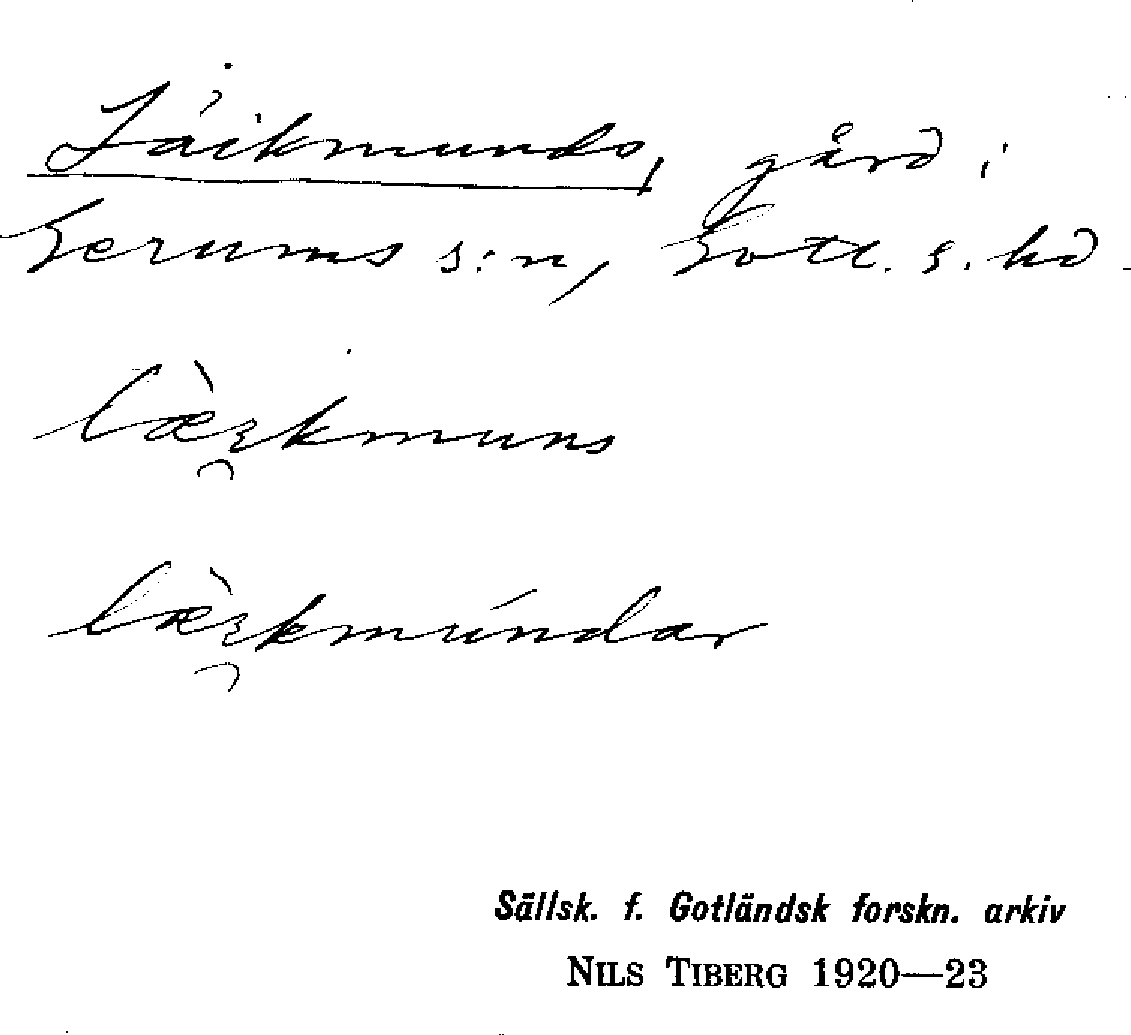 Láikmunds, gård i
Gerums s:n, Gotl. s. hd.
læ̀ɩ̯kmuns
læ̀ɩ̯kmúndar
Sällsk. f. Gotländsk forskn. arkiv
NILS TIBERG 1920—23